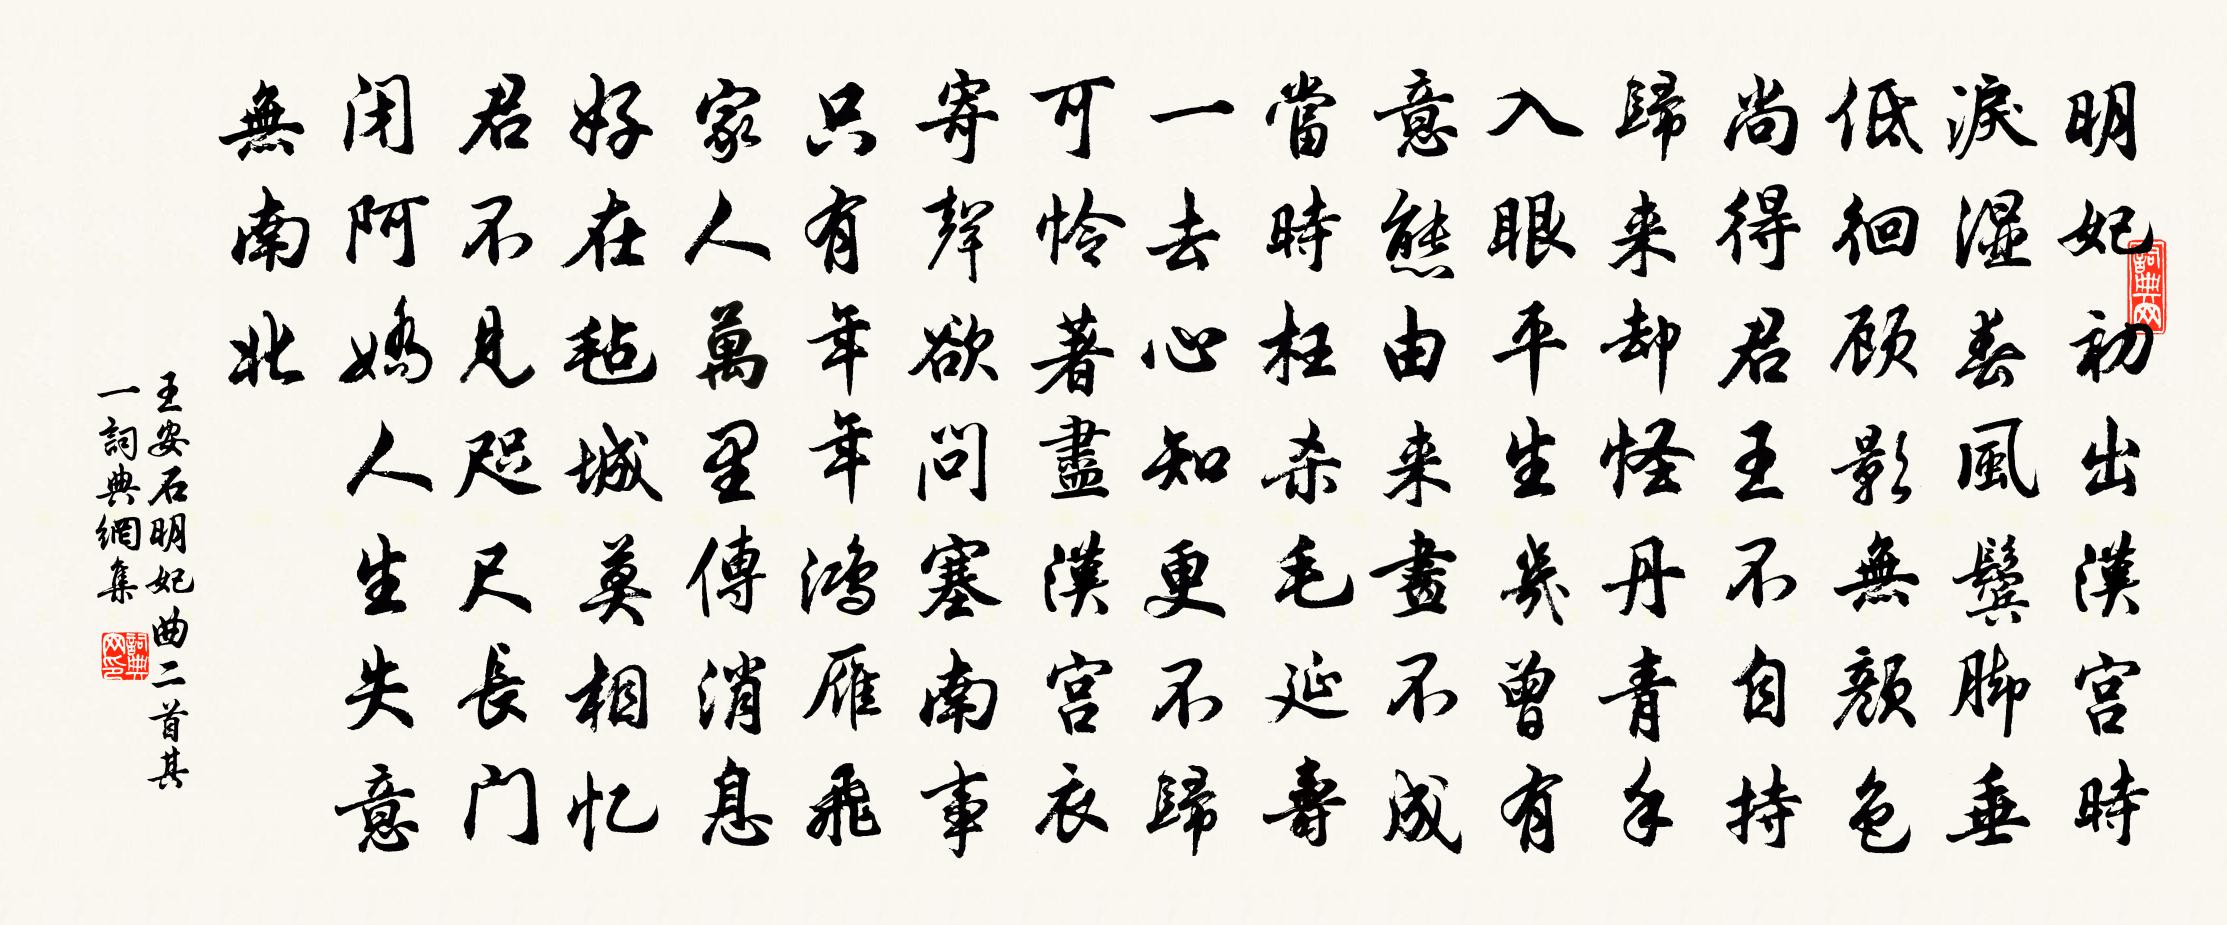 明妃初出漢宮時
淚濕春風鬢脚垂
低徊顾影無顏色
尚得君王不自持
歸来却怪丹青手
入眼平生幾曾有
意態由来畫不成
當時枉杀毛延壽
一去心知更不歸
可怜著盡漢宮衣
寄聲欲问塞南事
只有年年鸿雁飛
家人萬里傳消息
好在毡城莫相忆
君不見咫尺長门
闭阿嬌人生失意
無南北
王安石明妃曲二首其
一詞典網集
詞典网
詞典网印